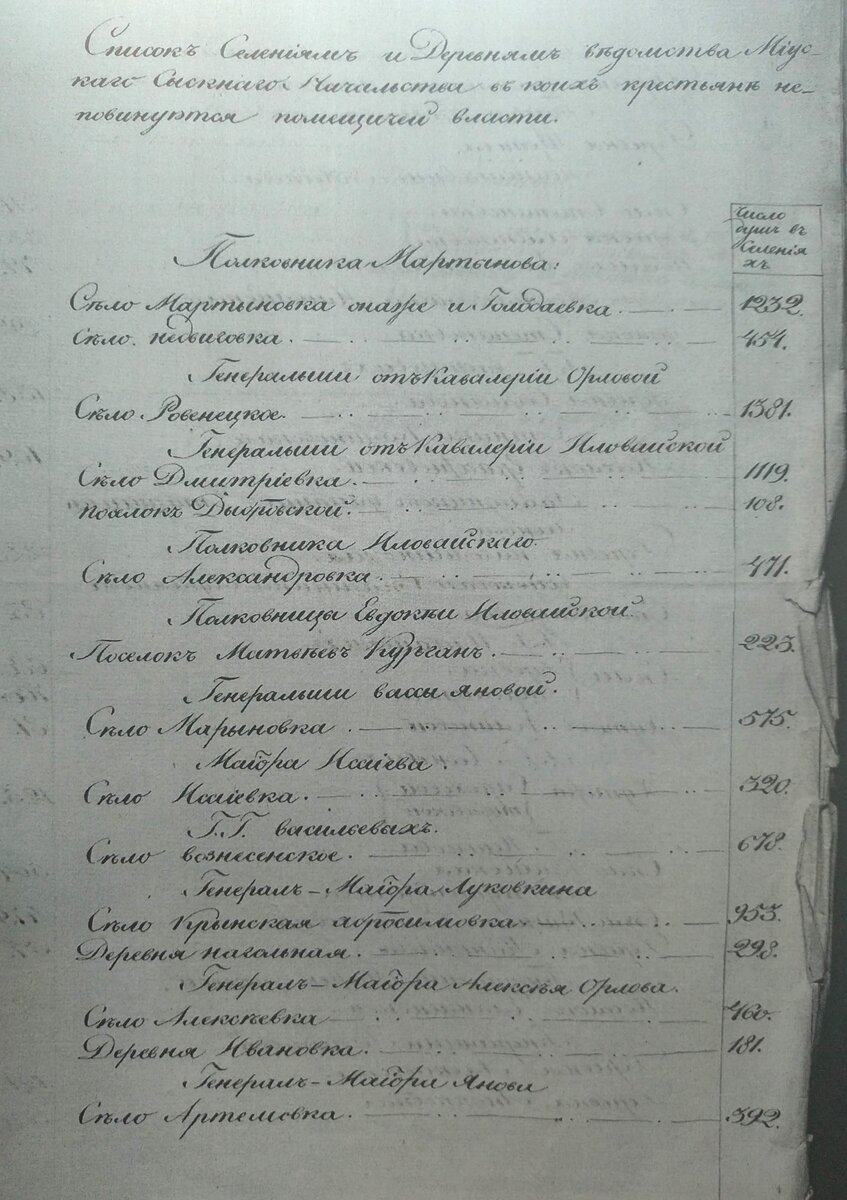 Списокъ Селеніямъ и Деревнямъ вѣдомства Міус-
каго Сыскнаго Начальства въ коихъ крестьяне не-
повинуются помещичей власти.
Число
душъ въ
Селенія
хъ
Полковника Мартынова:
Сѣло Мартыновка онаже и Голодаевка. 1232.
Сѣло. недвиговка. 454.
Генеральши отъ Кавалеріи Орловой
Сѣло Ровенецкое. 1381.
Генеральши отъ Кавалеріи Иловайской
Сѣло Дмитріевка. 1119.
поселокъ 108.
Полковника Иловайскаго.
Сѣло Александровка. 471.
Полковницы Евдокѣи Иловайской
Поселокъ Матвѣевъ Курганъ. 223.
Генеральши вассы яновой.
Сѣло Марьиновка. 575.
Маіора Исаіева.
Сѣло Исаіевка. 320.
Г.Г. васильевыхъ.
Сѣло вознесенское. 678.
Генералъ-Маіора Луковкина
Сѣло Крынская афросимовка 953.
Деревня нагольная. 298.
Генералъ-Маіора Алексѣя Орлова.
Сѣло Алексѣевка 460.
Деревня Ивановка. 181.
Генералъ-Маіора Янова
Сѣло Артемовка. 392.